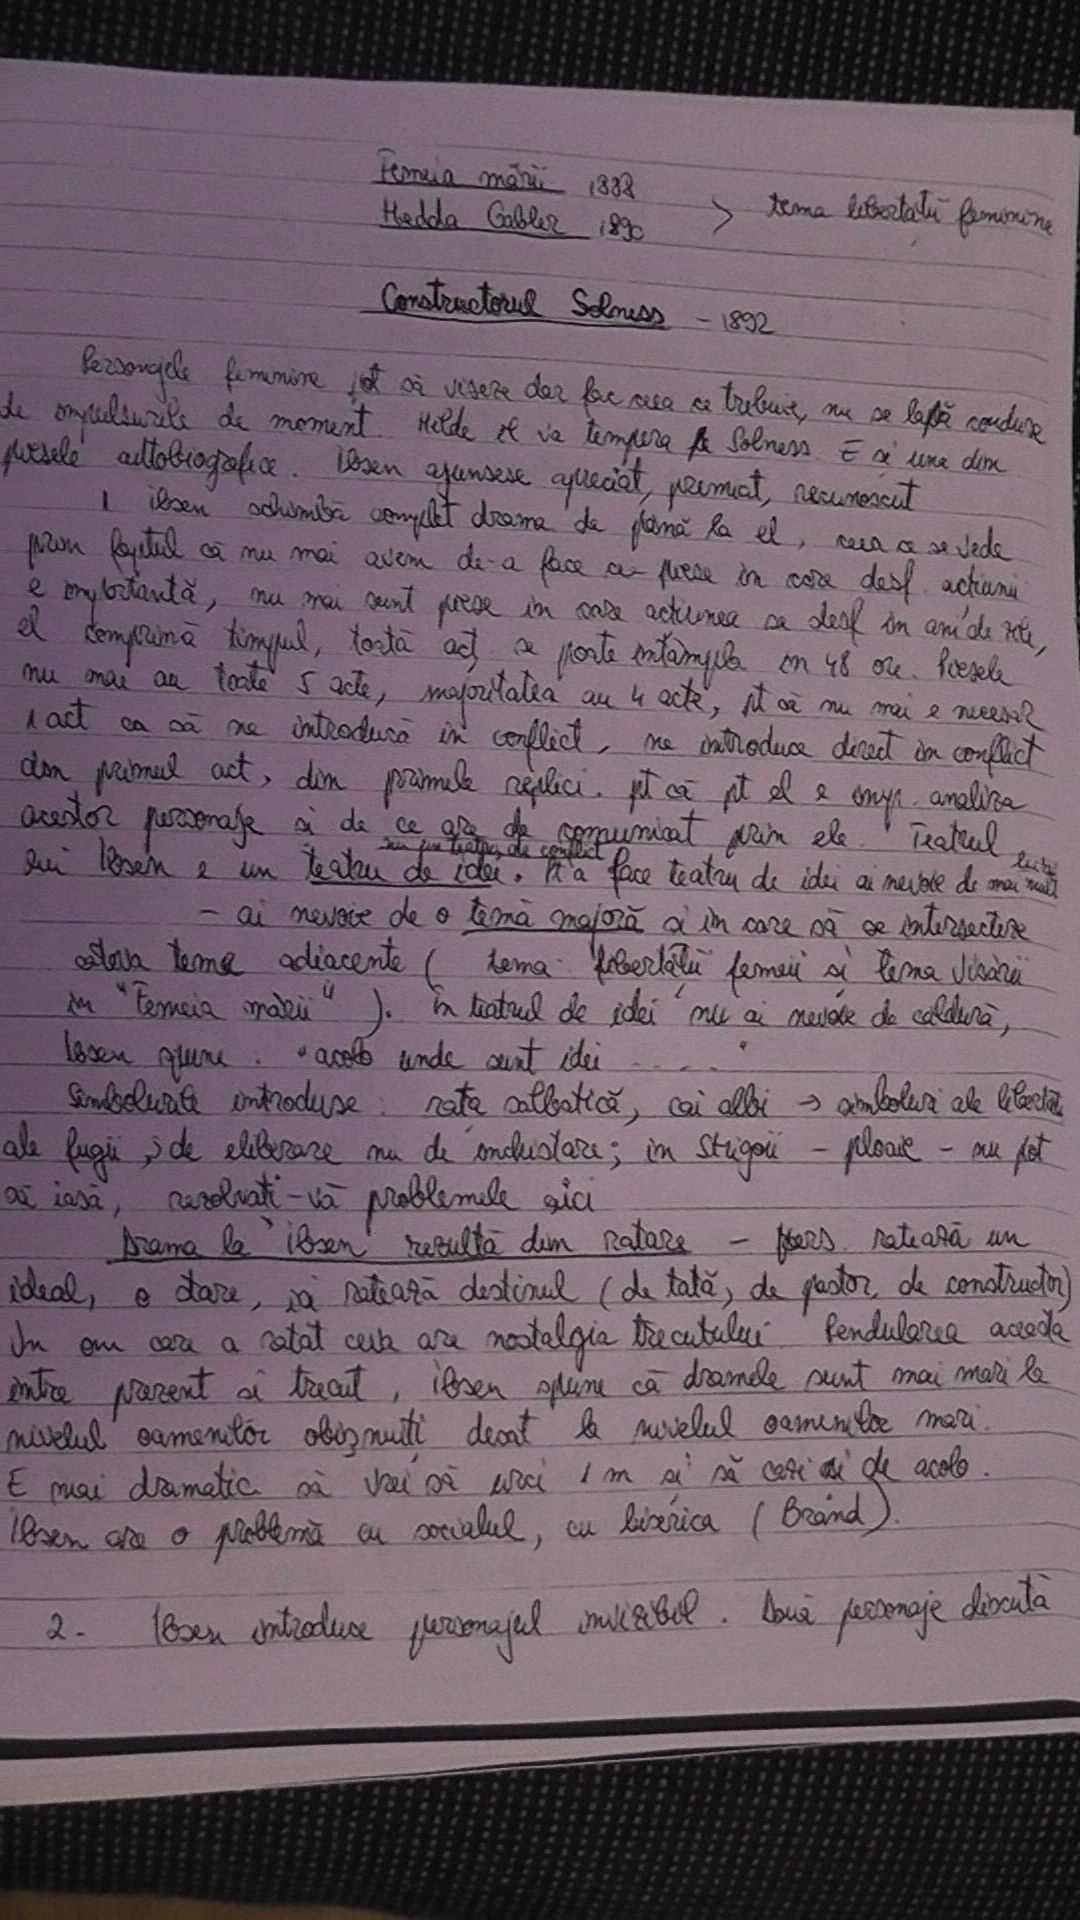 Femeia mării 1888
Hedda Gabler 1890 > tema libertății feminine
Constructorul Solness - 1892
Personajele feminine pot să viseze dar fac ceea ce trebuie, nu se lasă conduse
de impulsurile de moment. Hilde îl va tempera pe Solness E și una din
piesele autobiografice. Ibsen ajunsese apreciat, premiat, recunoscut
1 Ibsen schimbă complet drama de până la el, ceea ce se vede
prin faptul că nu mai avem de-a face cu piese în care desf. acțiunii
e importantă, nu mai sunt piese în care acțiunea se desf în ani de zile,
el comprimă timpul, toată acț se poate întâmpla în 48 ore. Piesele
nu mai au toate 5 acte, majoritatea au 4 acte, pt că nu mai e necesar
1 act ca să ne introducă în conflict, ne introduce direct în conflict
din primul act, din primele replici. pt că pt el e imp. analiza
acestor personaje și de ce are de comunicat prin ele. Teatrul
nu un teatru de conflict
lui Ibsen e un teatru de idei. Pt a face teatru de idei ai nevoie de mai multe
- ai nevoie de o temă majoră și în care să se intersecteze
câteva teme adiacente ( tema libertății femeii și tema visării
în "Femeia mării" ). În teatrul de idei nu ai nevoie de căldură,
Ibsen spune : "acolo unde sunt idei ..... "
Simbolurile introduse : rața sălbatică, cai albi → simboluri ale libertății
ale fugii, de eliberare nu de încătușare; în Strigoii - ploaie - nu pot
să iasă, rezolvați-vă problemele aici
Drama la Ibsen rezultă din ratare - pers. ratează un
ideal, o stare, își ratează destinul (de tată, de pastor, de constructor)
Un om care a ratat ceva are nostalgia trecutului. Pendularea aceasta
între prezent și trecut, Ibsen spune că dramele sunt mai mari la
nivelul oamenilor obișnuiți decât la nivelul oamenilor mari.
E mai dramatic să vrei să urci 1 m și să cazi și de acolo.
Ibsen are o problemă cu socialul, cu biserica ( Brand ).
2. Ibsen introduce personajul invizibil. Două personaje discută